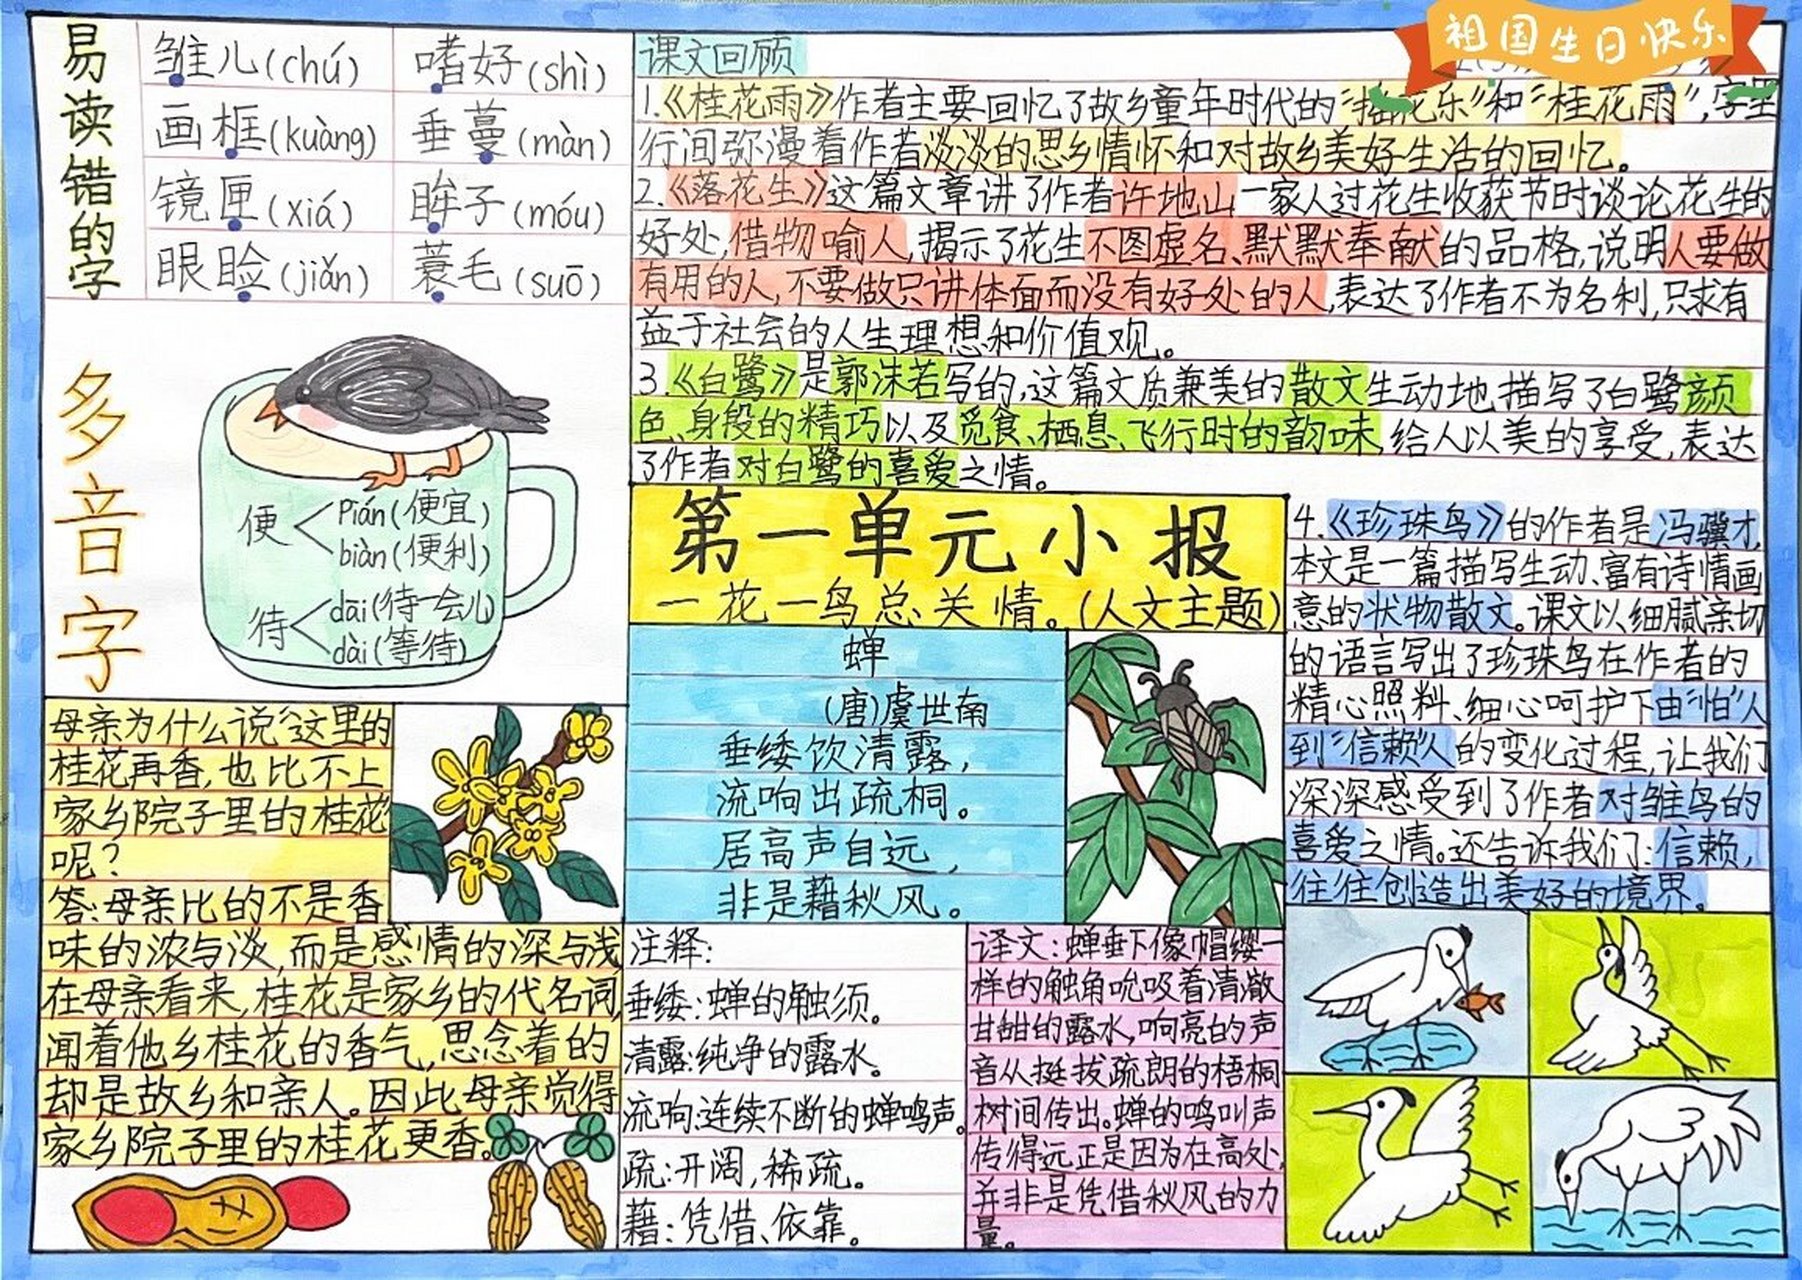 祖国生日快乐
易读错的字
雏儿(chú) 嗜好(shì)
画框(kuàng) 垂蔓(màn)
镜匣(xiá) 眸子(móu)
眼睑(jiǎn) 蓑毛(suō)
多音字
便 Pián(便宜)
biàn(便利)
待 dāi(待一会儿)
dài(等待)
课文回顾
1.《桂花雨》作者主要回忆了故乡童年时代的“摇花乐”和“桂花雨”,字里
行间弥漫着作者淡淡的思乡情怀和对故乡美好生活的回忆。
2.《落花生》这篇文章讲了作者许地山一家人过花生收获节时谈论花生的
好处,借物喻人,揭示了花生不图虚名、默默奉献的品格,说明人要做
有用的人,不要做只讲体面而没有好处的人,表达了作者不为名利,只求有
益于社会的人生理想和价值观。
3.《白鹭》是郭沫若写的,这篇文质兼美的散文生动地描写了白鹭颜
色、身段的精巧以及觅食、栖息、飞行时的韵味,给人以美的享受,表达
了作者对白鹭的喜爱之情。
第一单元小报
一花一鸟总关情。(人文主题)
4.《珍珠鸟》的作者是冯骥才,
本文是一篇描写生动、富有诗情画
意的状物散文。课文以细腻亲切
的语言写出了珍珠鸟在作者的
精心照料、细心呵护下由“怕”人
到“信赖”人的变化过程,让我们
深深感受到了作者对雏鸟的
喜爱之情。还告诉我们:信赖,
往往创造出美好的境界。
蝉
(唐)虞世南
垂緌饮清露,
流响出疏桐。
居高声自远,
非是藉秋风。
母亲为什么说“这里的
桂花再香,也比不上
家乡院子里的桂花
呢?
答:母亲比的不是香
味的浓与淡,而是感情的深与浅
在母亲看来,桂花是家乡的代名词,
闻着他乡桂花的香气,思念着的
却是故乡和亲人。因此母亲觉得
家乡院子里的桂花更香。
注释:
垂緌:蝉的触须。
清露:纯净的露水。
流响:连续不断的蝉鸣声。
疏:开阔,稀疏。
藉:凭借、依靠。
译文:蝉垂下像帽缨一
样的触角吮吸着清澈
甘甜的露水,响亮的声
音从挺拔疏朗的梧桐
树间传出。蝉的鸣叫声
传得远正是因为在高处,
并非是凭借秋风的力
量。